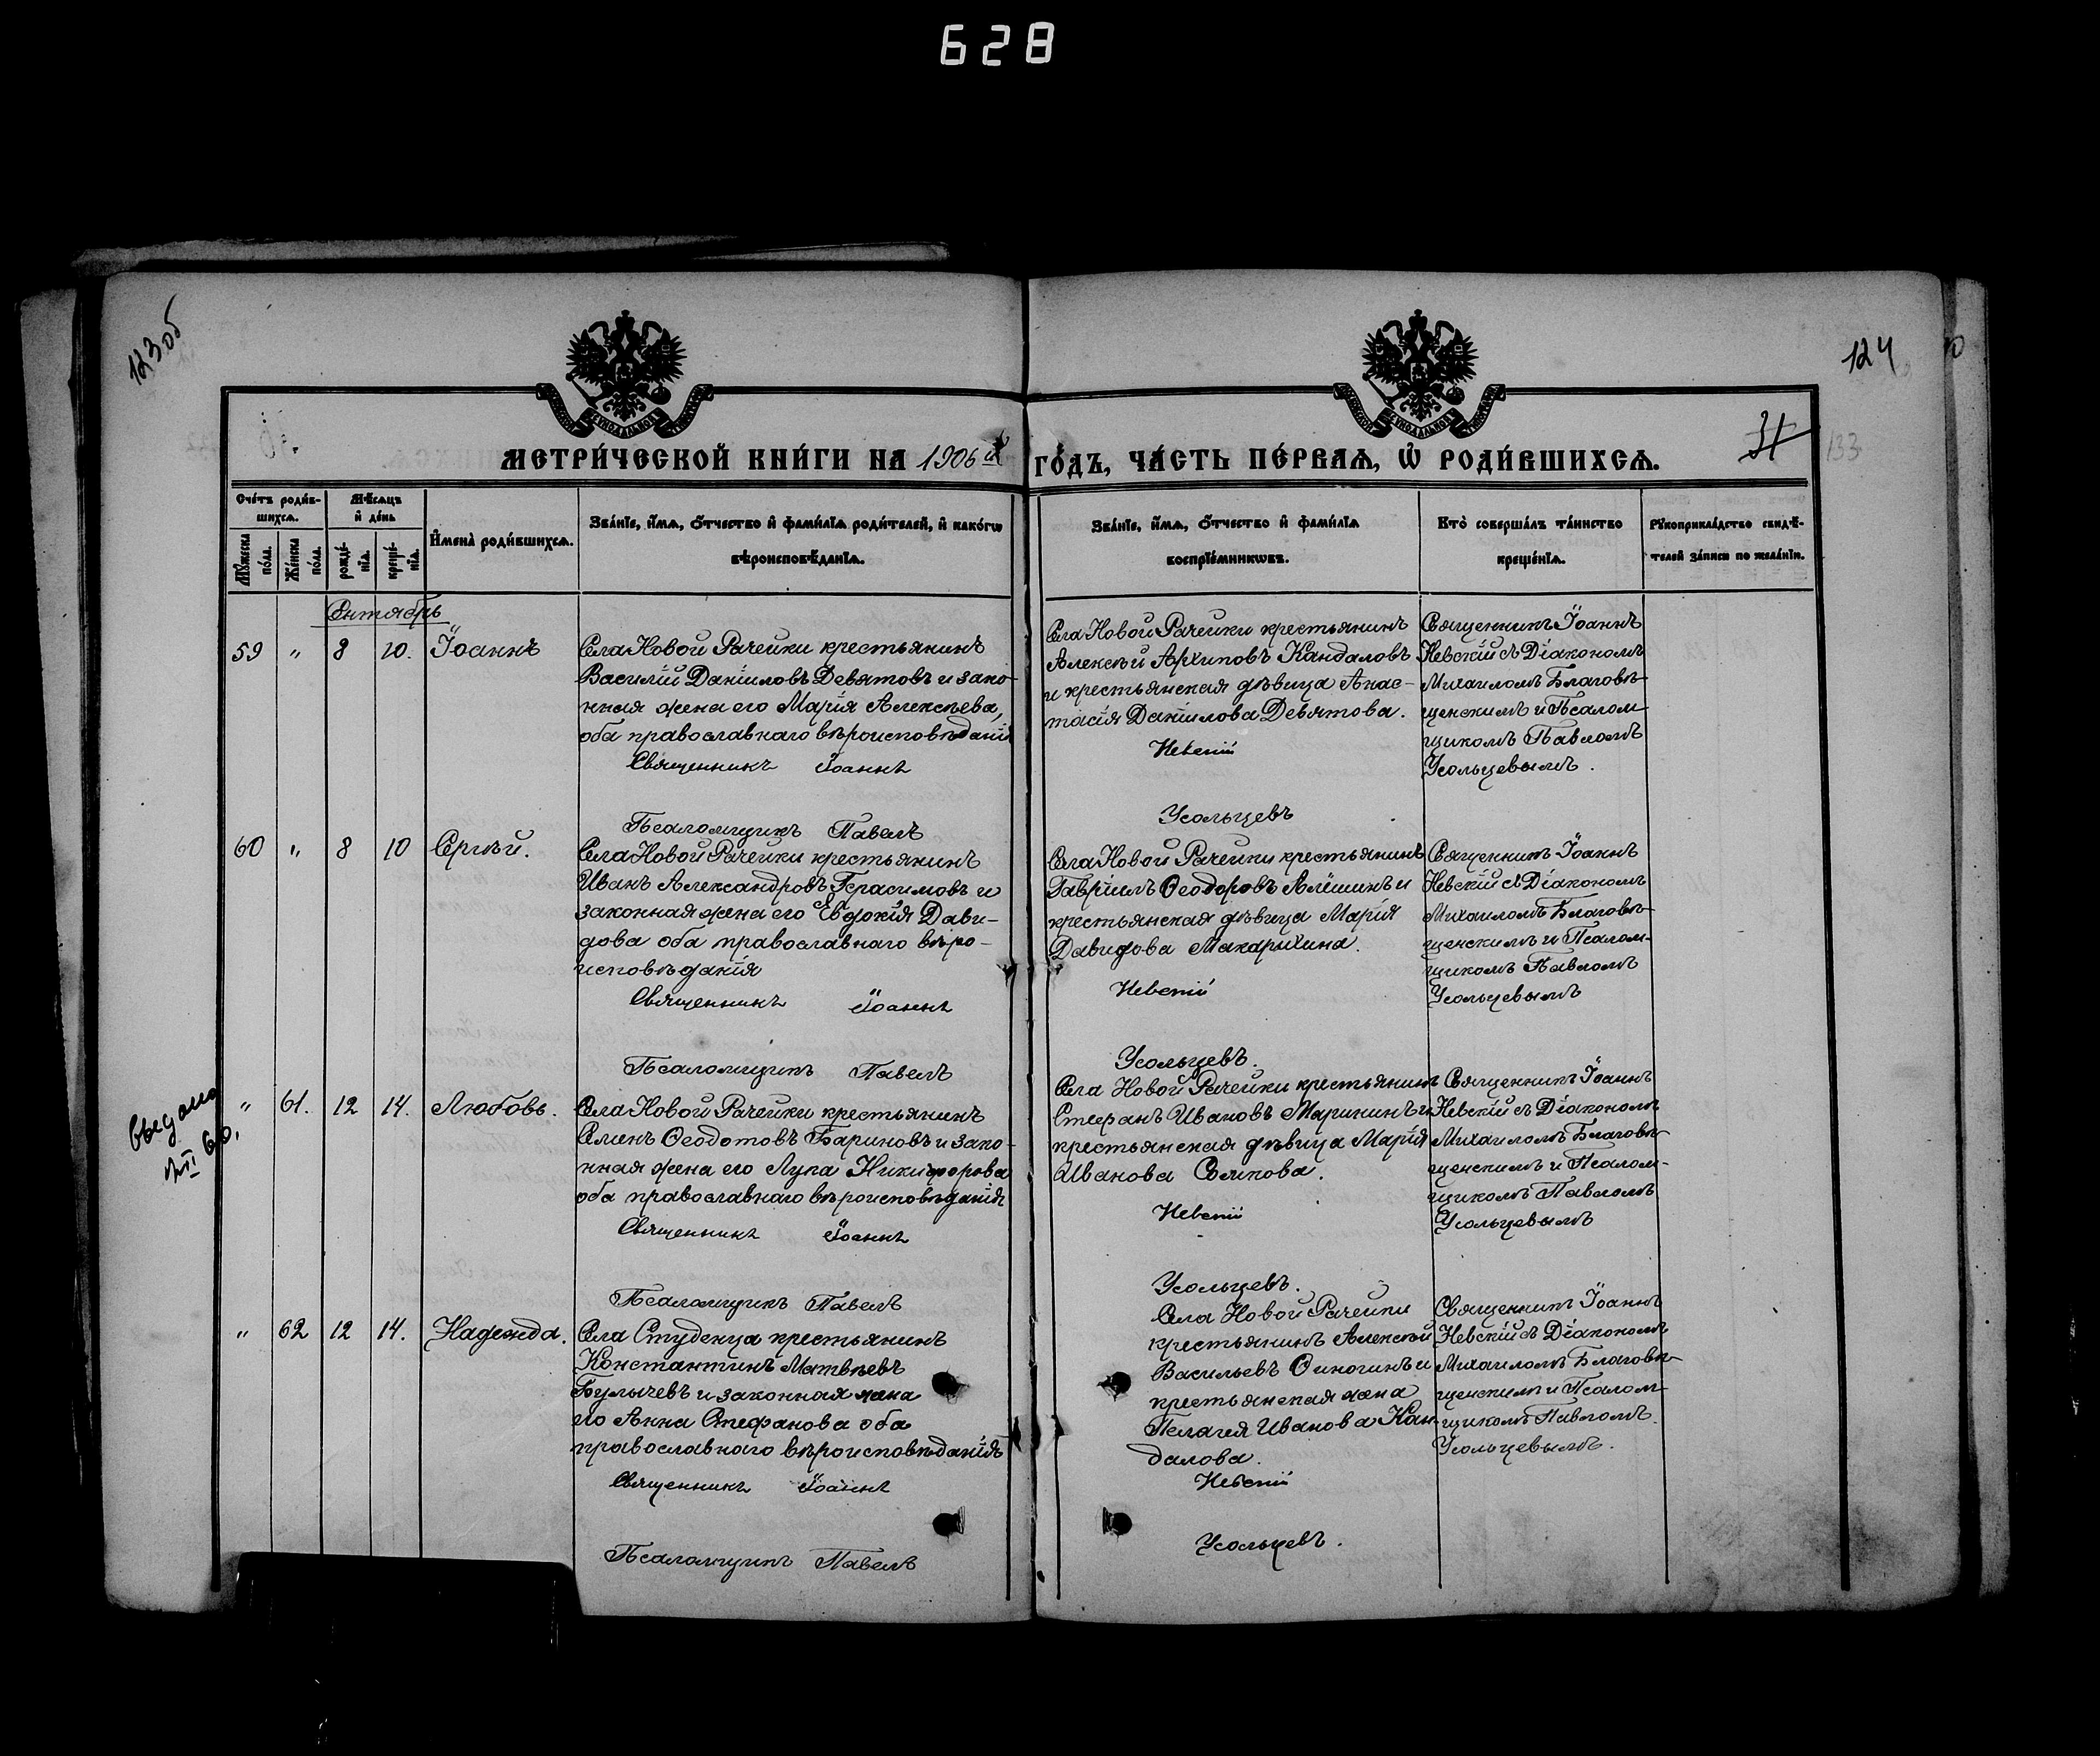 628
123 об
124
31
133
МЕТРИ́ЧЕСКОЙ КНИ́ГИ НА 1906 й ГО́ДЪ, ЧА́СТЬ ПЕ́РВАѦ, Ѡ РОДИ́ВШИХСѦ.
Сче́тъ роди́вшихсѧ.
Мꙋ́жеска по́ла.
Же́нска по́ла.
Мѣ́сѧцъ и҆ де́нь
рожде́нїѧ.
креще́нїѧ.
И҆мена̀ роди́вшихсѧ.
Зва́нїе, и҆́мѧ, ѻ҆́тчество и҆ фами́лїѧ роди́телей, и҆ како́гѡ
вѣроисповѣ́данїѧ.
Зва́нїе, и҆́мѧ, ѻ҆́тчество и҆ фами́лїѧ
воспрїе́мникѡвъ.
Кто̀ соверша́лъ та́инство
креще́нїѧ.
Рꙋкоприкла́дство свидѣ́-
телей за́писи по жела́нїю.
Октябрь
59 " 8 10. Іоаннъ
Села Новой Рачейки крестьянинъ
Василій Даніиловъ Девятовъ и зако-
нная жена его Марія Алексѣева,
оба православнаго вѣроисповѣданія
Священникъ Іоаннъ
Псаломщикъ Павелъ
Села Новой Рачейки крестьянинъ
Алексѣй Архиповъ Кандаловъ
и крестьянская дѣвица Анас-
тасія Даніилова Девятова.
Невскій
Усольцевъ
Священникъ Іоаннъ
Невскій съ Діакономъ
Михаиломъ Благовѣ-
щенскимъ и Псалом-
щикомъ Павломъ
Усольцевымъ.
60 " 8 10 Сергѣй.
Села Новой Рачейки крестьянинъ
Иванъ Александровъ Герасимовъ и
законная жена его Евдокія Дави-
дова оба православнаго вѣро-
исповѣданія
Священникъ Іоаннъ
Псаломщикъ Павелъ
Села Новой Рачейки крестьянинъ
Гавріилъ Ѳеодоровъ Алёшинъ и
крестьянская дѣвица Марія
Давидова Макарихина.
Невскій
Усольцевъ.
Священникъ Іоаннъ
Невскій съ Діакономъ
Михаиломъ Благовѣ-
щенскимъ и Псалом-
щикомъ Павломъ
Усольцевымъ
" 61. 12 14. Любовь.
Села Новой Рачейки крестьянинъ
Семенъ Ѳеодотовъ Бариновъ и зако-
нная жена его Лукія Никифорова
оба православнаго вѣроисповѣданія
Священникъ Іоаннъ
Псаломщикъ Павелъ
Села Новой Рачейки крестьянинъ
Стефанъ Ивановъ Марининъ и
крестьянская дѣвица Марія
Иванова Сомкова.
Невскій
Усольцевъ.
Священникъ Іоаннъ
Невскій съ Діакономъ
Михаиломъ Благовѣ-
щенскимъ и Псалом-
щикомъ Павломъ
Усольцевымъ
" 62 12 14. Надежда.
Села Студенца крестьянинъ
Константинъ Матвѣевъ
Булычевъ и законная жена
его Анна Стефанова оба
православнаго вѣроисповѣданія
Священникъ Іоаннъ
Псаломщикъ Павелъ
Села Новой Рачейки
крестьянинъ Алексѣй
Васильевъ Финогинъ и
крестьянская жена
Пелагея Иванова Кан-
далова.
Невскій
Усольцевъ.
Священникъ Іоаннъ
Невскій съ Діакономъ
Михаиломъ Благовѣ-
щенскимъ и Псалом-
щикомъ Павломъ.
Усольцевымъ.